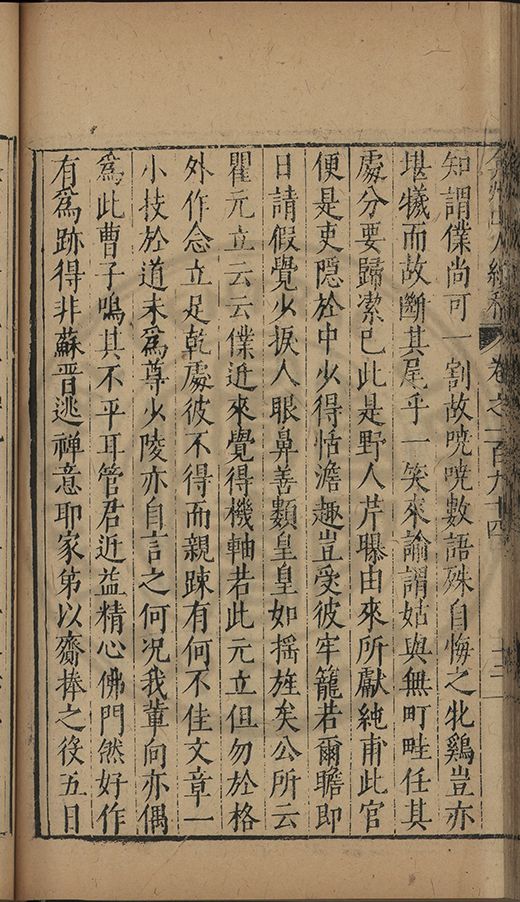 知謂僕尚可一割故嘵嘵數語殊自悔之牝鷄豈亦
堪犧而故斷其尾乎一笑來諭謂姑與無町畦任其
處分要歸潔已此是野人芹曝由來所獻純甫此官
便是吏隱於中少得恬澹趣豈受彼牢籠若爾瞻即
日請假覺少捩人眼鼻善類皇皇如揺旌矣公所云
瞿元立云云僕近來覺得機軸若此元立但勿於格
外作念立足乾處彼不得而親踈有何不佳文章一
小技於道未爲尊少陵亦自言之何况我軰向亦偶
爲此曹子鳴其不平耳管君近益精心佛門然好作
有爲跡得非蘇晋逃禅意耶家弟以齎捧之役五日
弇州山人續稿
卷之一百九十四
十二